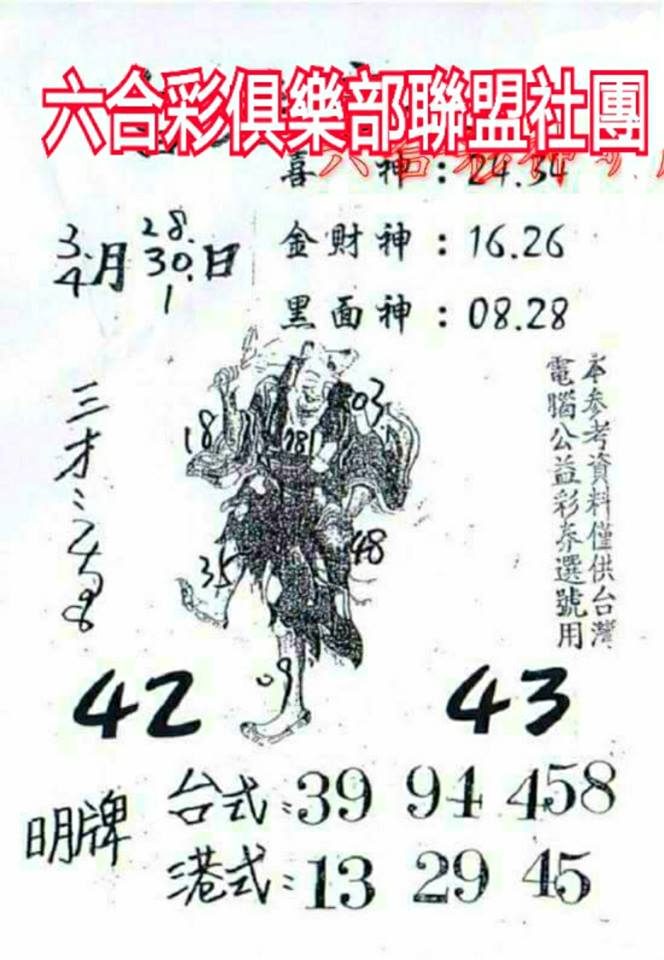 六合彩俱樂部聯盟社團
喜 神：24.34
金財神：16.26
黑面神：08.28
3. 28.
月 30. 日
4 1
18
03.
781
35
48
09
三才：
本參考資料僅供台灣
電腦公益彩券選號用
42 43
明牌
台式：39 94 458
港式：13 29 45